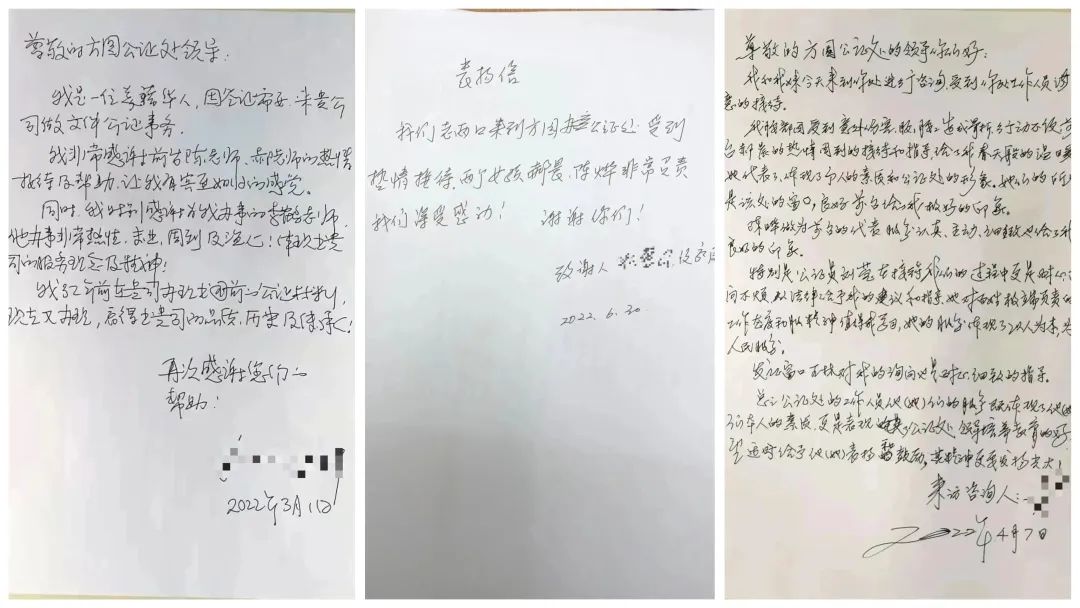 尊敬的方圆公证处领导:
我是一位美籍华人,因签证需要,来贵公
司做文件公证事务。
我非常感谢前台陈老师、郝老师的热情
接待及帮助,让我有宾至如归的感觉。
同时,我特别感谢为我办事的李鹤老师,
他办事非常热情、专业、周到及
司的服务理念及精神!
我32年前在贵司办理出国前的公证
现在又办理,贵司的品质,历史及传承!
再次感谢您们的
帮助!
2022年3月1日
表扬信
我们老两口来到方圆公证处受到
热情接待,两个女孩郝晨、陈烨非常负责
我们深受感动!谢谢你们!
致谢人
2022.6.30
尊敬的方圆公证处的领导你们好:
我和我妹今天来到你处进行咨询,受到你处工作人员诚
恳的接待。
我
的热情周到的接待和指导,给了我春天般的温暖
她代表了,体现了个人的素质和公证处的形象。她们的
是该处的窗口,良好给我极好的印象。
做为前台的代表服务认真、主动、细致也给了我
良好的印象。
特别是公证员刘在接待我们的过程中更是耐心
问不烦,从法律上给予我的建议和指导,她对极端负责的
工作态度和服务精神值得我学习,她的服务体现了以人为本,为
人民服务。
发证窗口对我的询问也是耐心、细致的指导。
总之公证处的工作人员他(她)们的服务既体现了他(她)
们本人的素质,更是表现公证处领导培养教育的好
望适时给予他(她)表扬鼓励,其精神发扬光大!
来访咨询人:
2022年4月7日